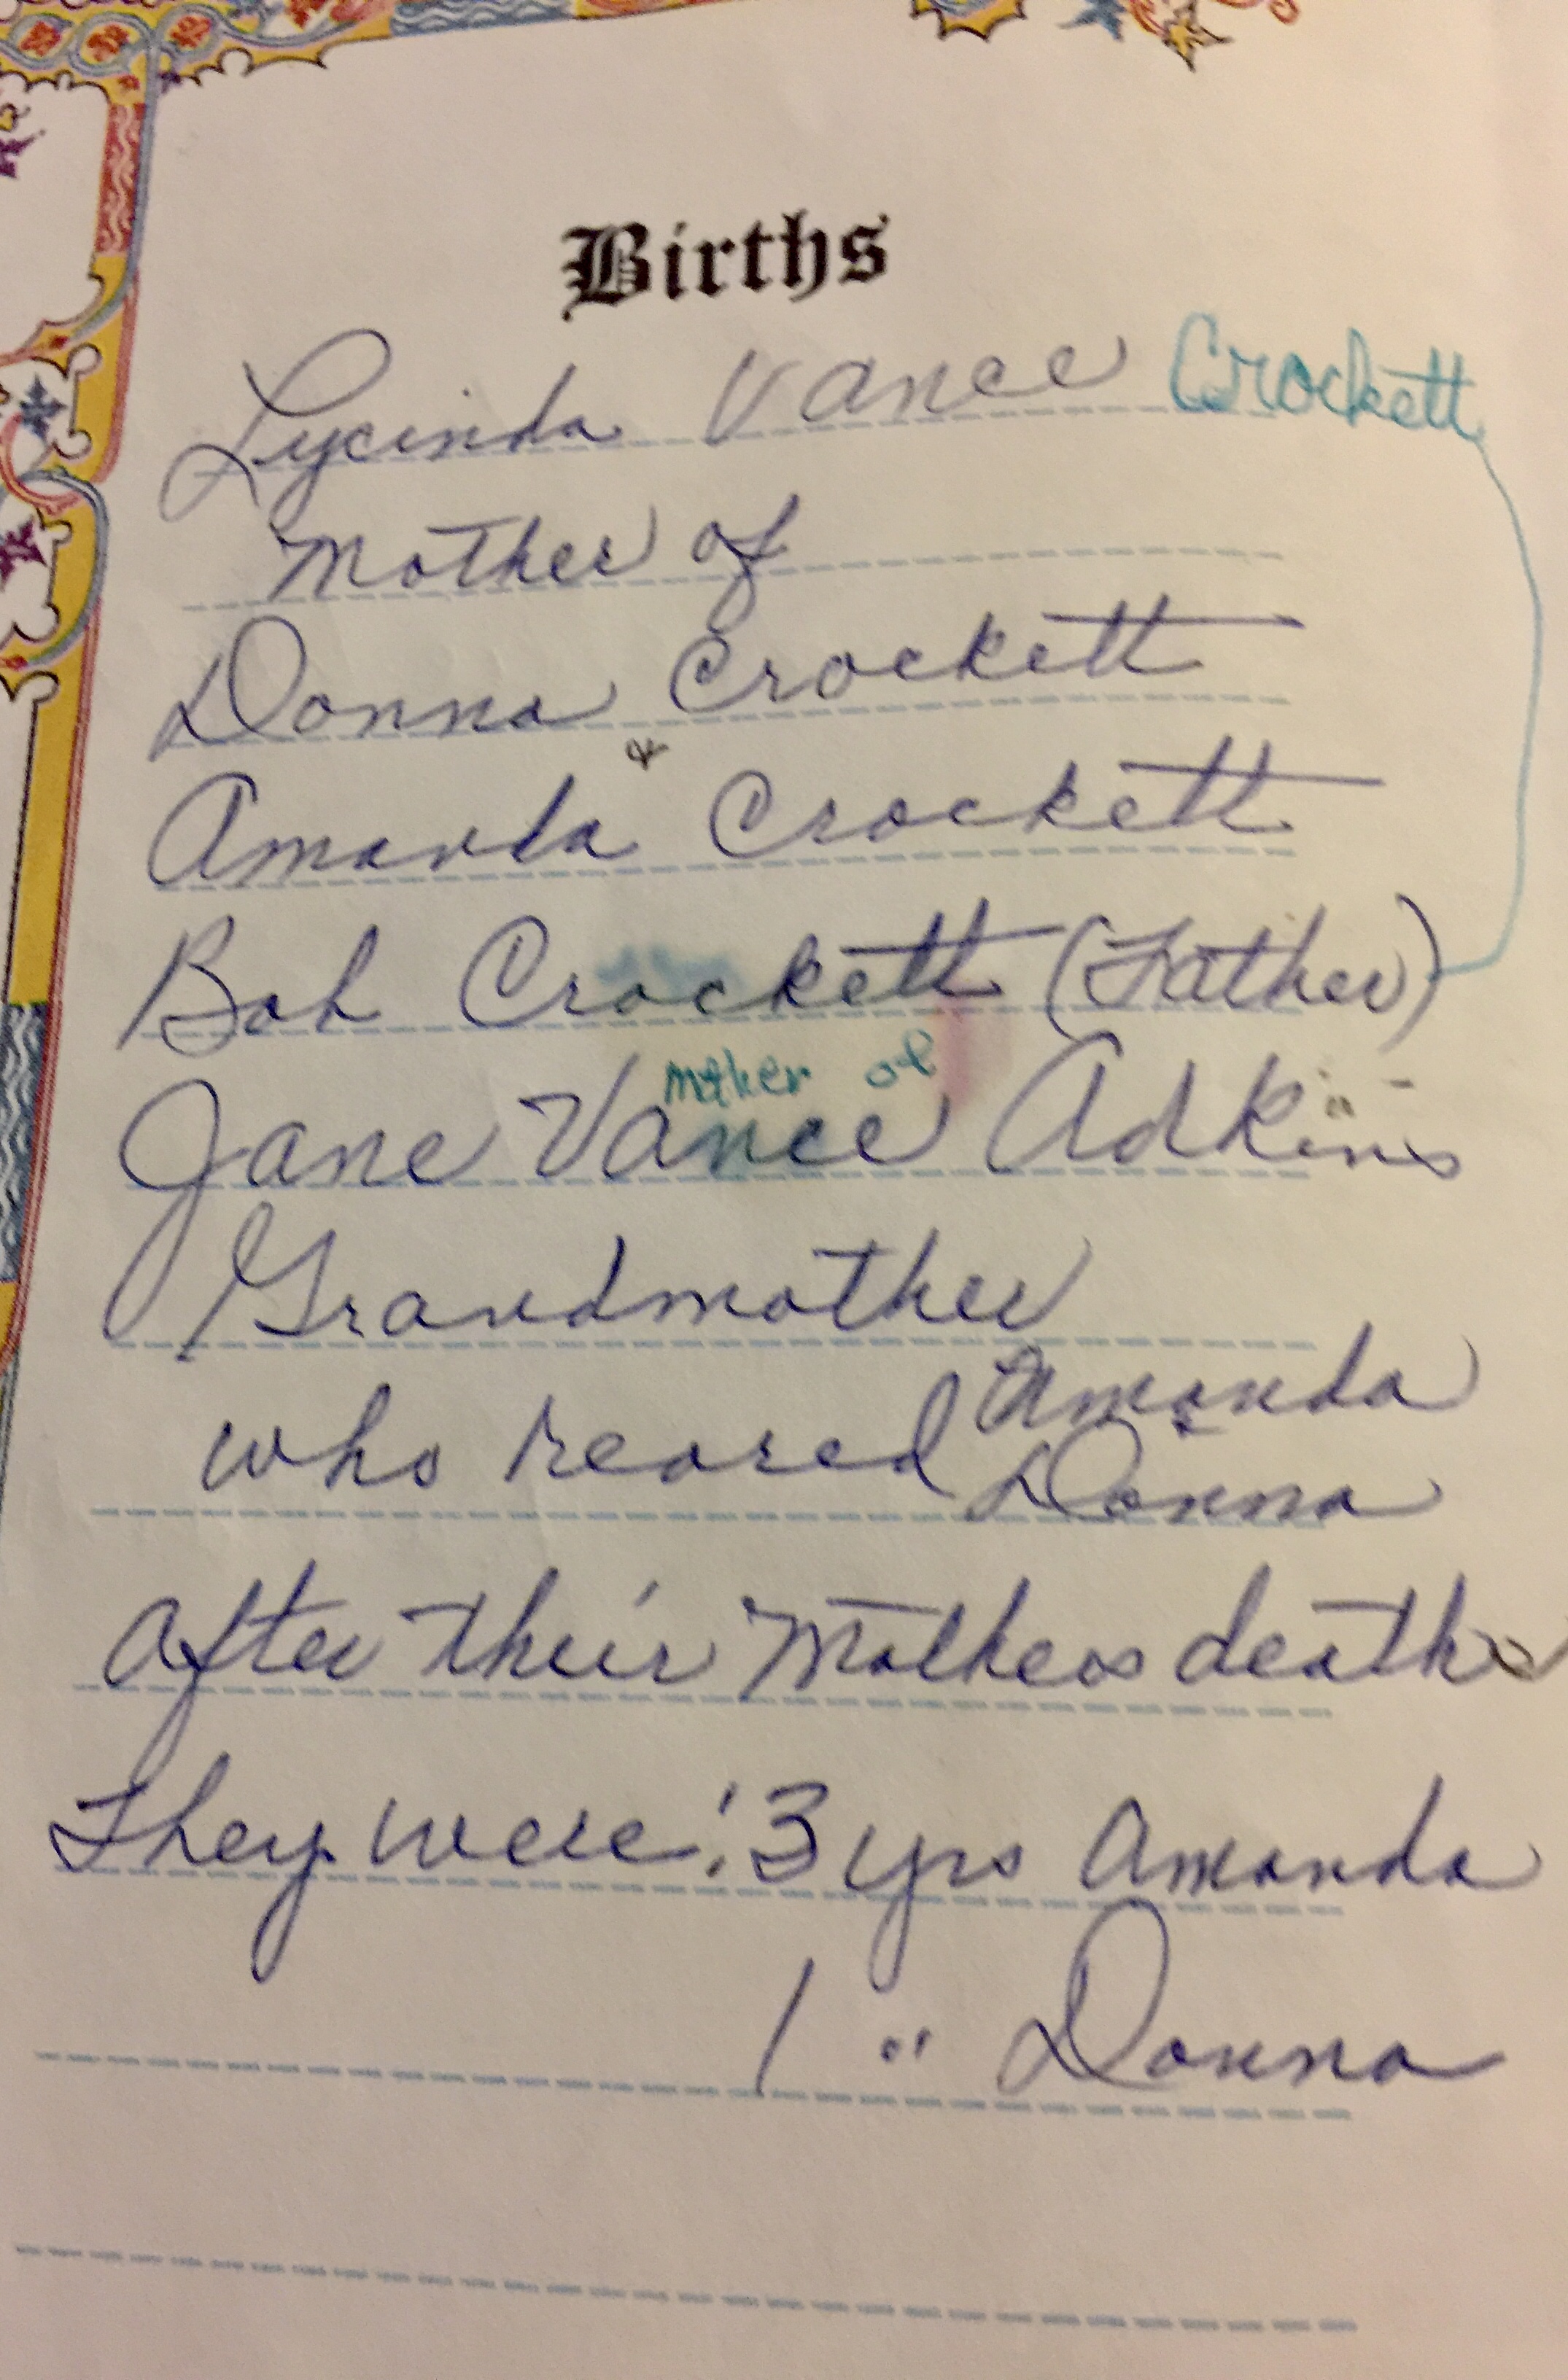 Births
Lycinda Vance Crockett
Mother of
Donna Crockett
&
Amanda Crockett
Bob Crockett (Father)
mother of
Jane Vance Adkins
Grandmother
who reared Amanda
& Donna
after their Mothers death
They were: 3 yrs Amanda
1 " Donna